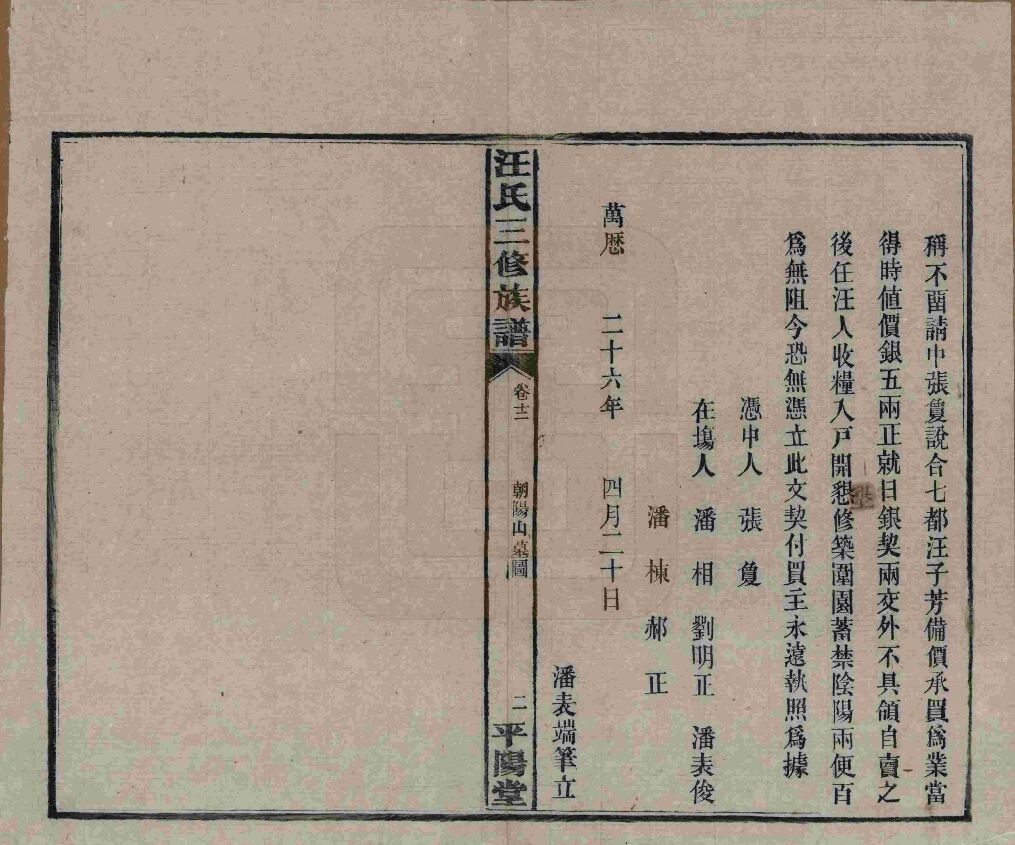 稱不畱請中張敻說合七都汪子芳備價承買爲業當
得時値價銀五兩正就日銀契兩交外不具領自賣之
後任汪人收糧入戸開懇修築圍園蓄禁陰陽兩便百
墾
爲無阻今恐無憑立此文契付買主永遠執照爲據
憑中人 張 敻
在塲人 潘 相 劉明正 潘表俊
潘 棟 郝 正
萬歷 二十六年 四月二十日
潘表端筆立
汪氏三修族譜 卷十二 朝陽山墓圖 二 平陽堂